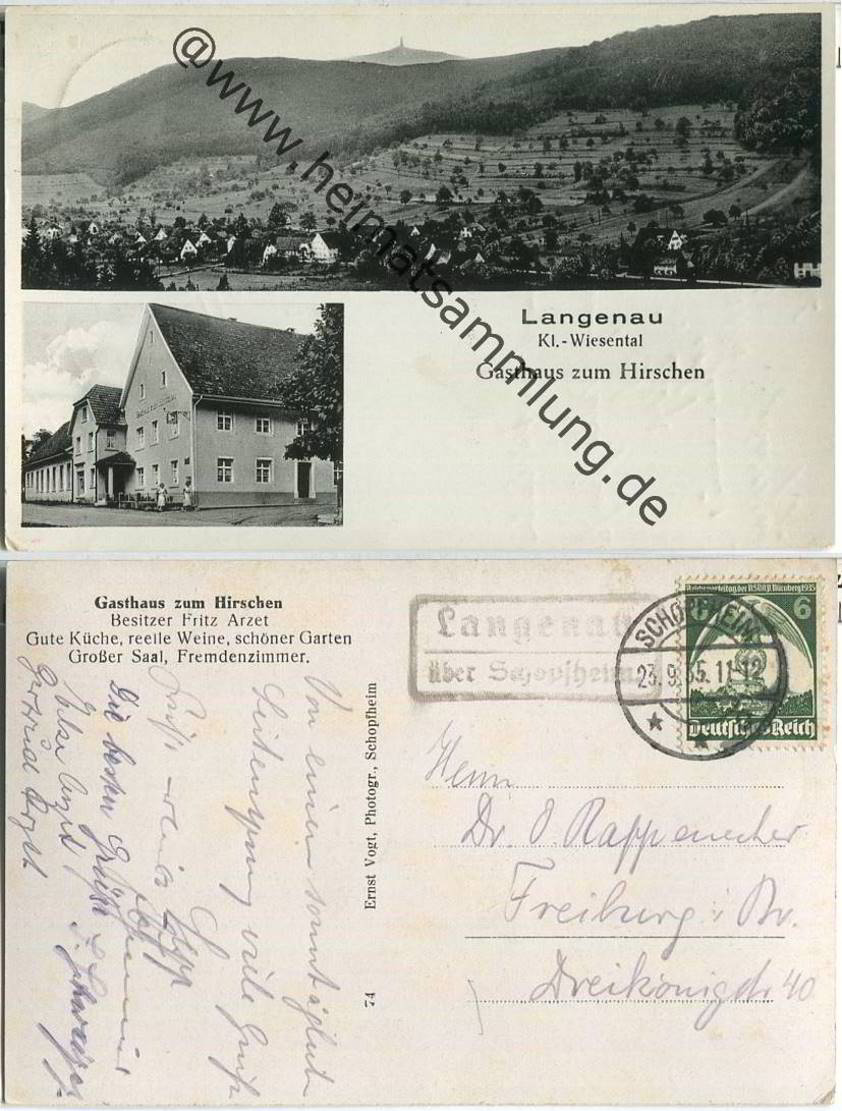 @www.heimatsammlung.de
Langenau
Kl.-Wiesental
Gasthaus zum Hirschen
Gasthaus zum Hirschen
Besitzer Fritz Arzet
Gute Küche, reelle Weine, schöner Garten
Großer Saal, Fremdenzimmer.
Langenau
über Schopfheim
SCHOPFHEIM
23.9.35.11-12
Reichsparteitag der NSDAP Nürnberg 1935
6
Deutsches Reich
Ernst Vogt, Photogr., Schopfheim
74
Herrn
Dr. O. Rappenecker
Freiburg i Br.
Dreikönigstr 40
Von einem sonntäglichen
viele Grüße
Die besten Grüße
Arzet
Gertrud Arzet